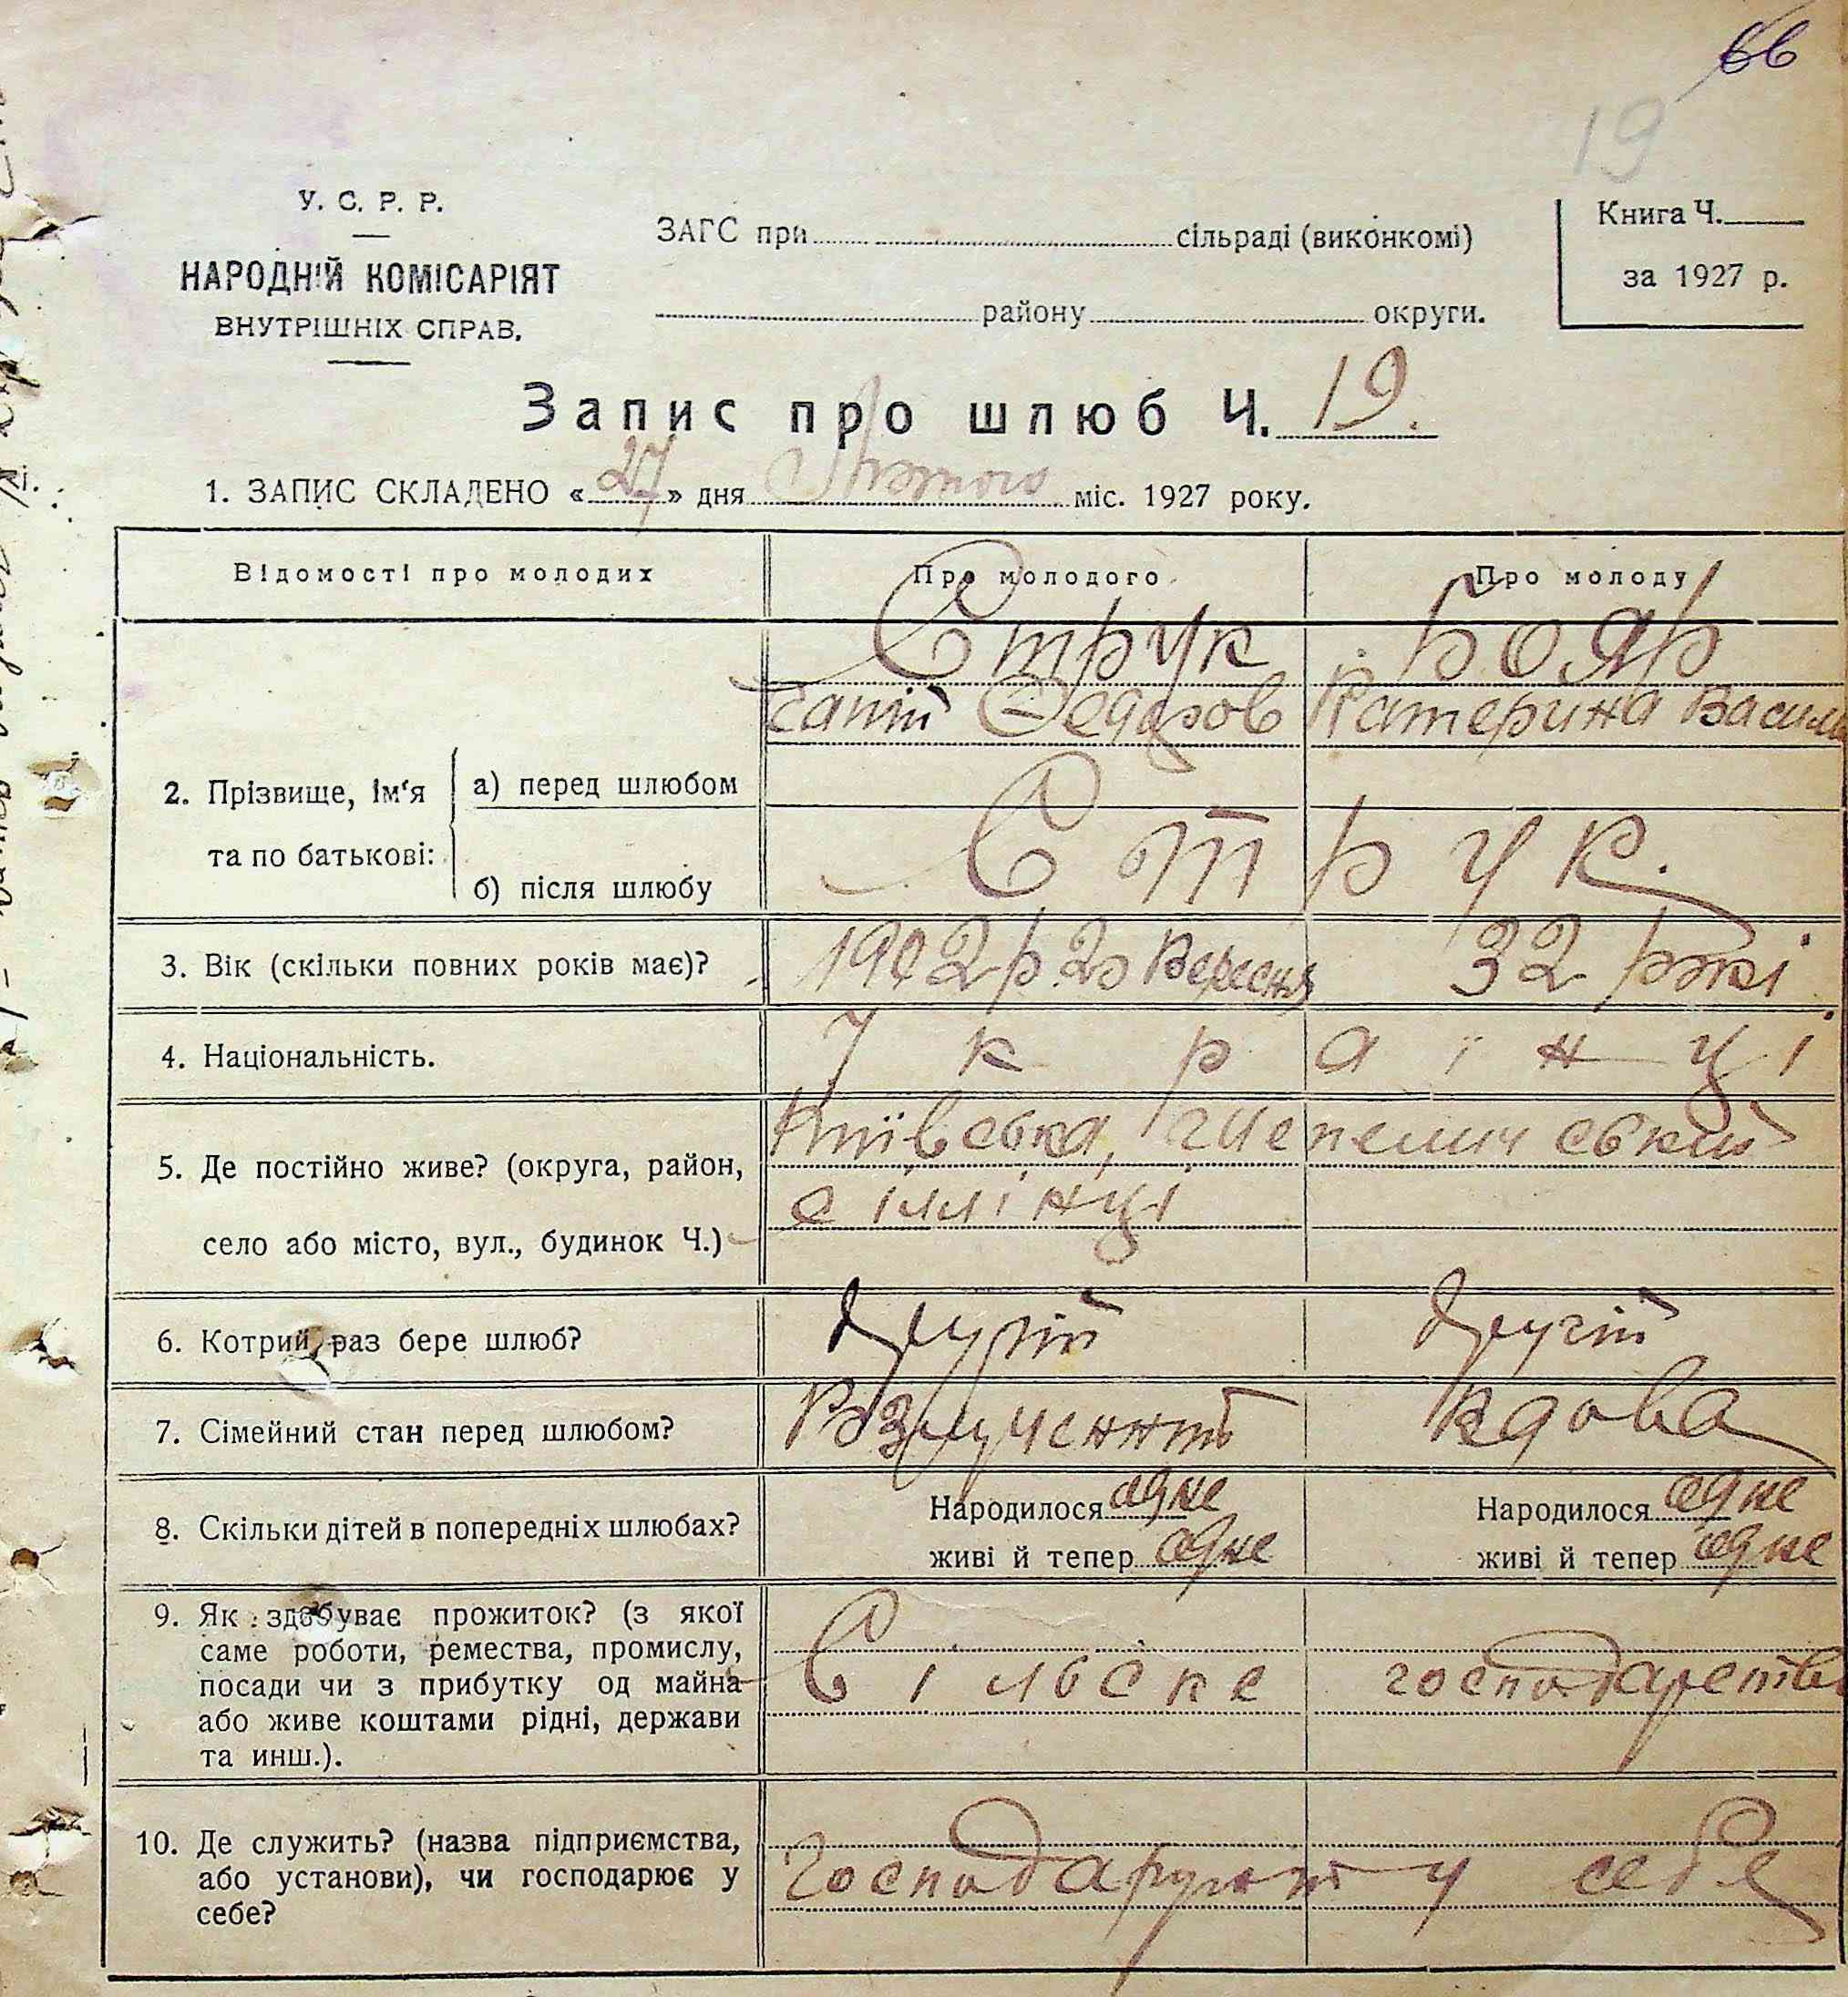 66
19
У. С. Р. Р.
НАРОДНІЙ КОМІСАРІЯТ
ВНУТРІШНІХ СПРАВ.
ЗАГС при сільраді (виконкомі)
району округи.
Книга Ч.
за 1927 р.
Запис про шлюб Ч. 19.
1. ЗАПИС СКЛАДЕНО «27» дня Лютого міс. 1927 року.
Відомості про молодих Про молодого Про молоду
Струк Бояр
Федоров Катерина Васил
2. Прізвище, ім‘я та по батькові:
а) перед шлюбом
б) після шлюбу
Струк.
3. Вік (скільки повних років має)? 1902 р 20 Вересня 32 роки
4. Національність. Українці
5. Де постійно живе? (округа, район, село або місто, вул., будинок Ч.)
Київська,
с Іллінці
6. Котрий раз бере шлюб? Другій Другій
7. Сімейний стан перед шлюбом? Вдова
8. Скільки дітей в попередніх шлюбах?
Народилося одне Народилося одне
живі й тепер одне живі й тепер одне
9. Як здобуває прожиток? (з якої
саме роботи, ремества, промислу,
посади чи з прибутку од майна
або живе коштами рідні, держави
та инш.).
Сільске господарство
10. Де служить? (назва підприємства,
або установи), чи господарює у
себе?
Господарують у себе